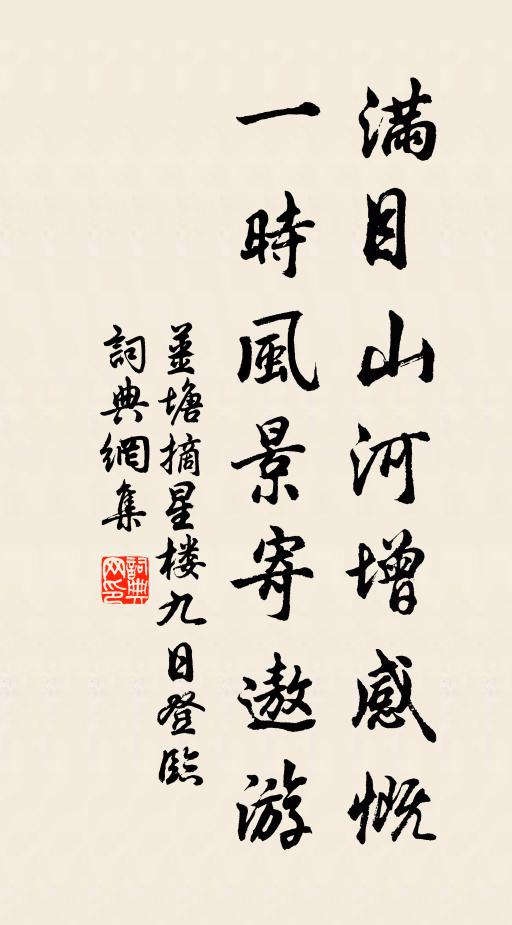 滿目山河增感慨
一時風景寄遨游
薑塘摘星楼九日登臨
詞典網集
詞典網印